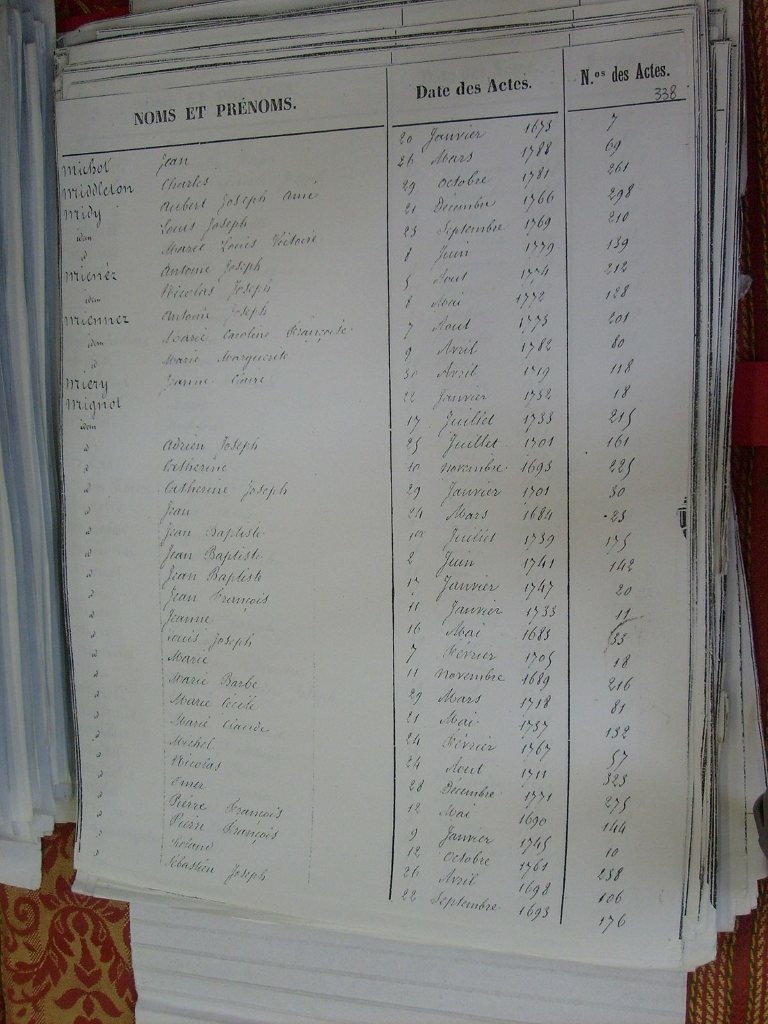 NOMS ET PRÉNOMS. Date des Actes. N.os des Actes.
338
Michol Jean 20 Janvier 1673 7
Middleton Charles 26 Mars 1788 69
Midy Aubert Joseph Aimé 29 octobre 1781 261
idem Louis Joseph 21 Decembre 1766 298
d Marie Louis Victoire 23 Septembre 1769 210
Mienéz Antoine Joseph 8 Juin 1779 139
idem Nicolas Joseph 5 Aout 1774 212
Miennez Antoine Joseph 8 Mai 1772 128
idem Marie Caroline Françoise 7 Aout 1773 201
d Marie Marguerite 9 Avril 1782 80
Miery Jeanne Claire 30 Avril 1719 118
Mignot 22 Janvier 1732 18
idem 17 Juillet 1733 215
d Adrien Joseph 25 Juillet 1701 161
d Catherine 10 novembre 1693 225
d Catherine Joseph 29 Janvier 1701 30
d Jean 24 Mars 1684 23
d Jean Baptiste 1er Juillet 1739 175
d Jean Baptiste 2 Juin 1741 142
d Jean Baptiste 17 Janvier 1747 20
d Jean François 11 Janvier 1733 11
d Jeanne 16 Mai 1683 33
d Louis Joseph 7 Fevrier 1705 18
d Marie 11 novembre 1689 216
d Marie Barbe 29 Mars 1718 81
d Marie Cécile 21 Mai 1737 132
d Marie Claude 24 Février 1767 57
d Michel 24 Aout 1711 323
d Nicolas 28 Decembre 1771 275
d Omer 12 Mai 1690 144
d Pierre François 9 Janvier 1745 10
d Pierre François 12 octobre 1761 238
d Roland 26 Avril 1698 106
d Sébastien Joseph 22 Septembre 1693 176